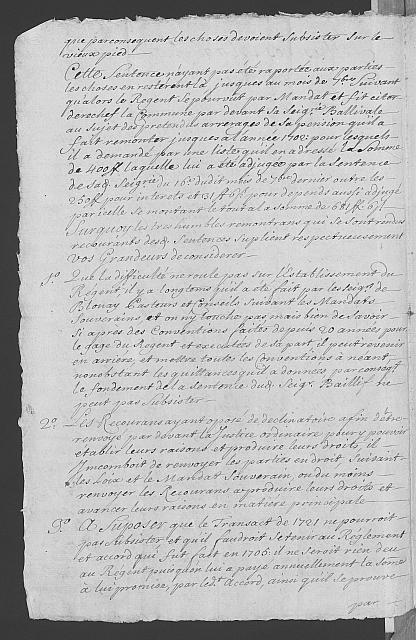 que parconsequent les choses devoient Subsister Sur le
vieux pied
Cette Sentence n'ayant pas été raportée aux parties
les choses en resterent là jusques au mois de 7bre Suivant
qu'alors le Regent Se pourvoit par Mandat et fit citer
derechef la Commune par devant Sa Seigrie Ballivale
au Sujet des pretendus arrerages de Sa pension qu'il a
fait remonter jusques à l'année 1702 pour lesquels
il a demandé par une liste qu'il en a dressé la Somme
de 400ff laquelle lui a eté adjugée par la Sentence
de Sad. Seigrie du 16e dudit mois de 7bre dernier outre les
250ff pour interets et 31ff 6ß pour depends aussi adjugé
par icelle Se montant le tout à la Somme de 681ff 6ß
Surquoy les tres humbles remontrans qui Se sont rendus
recourants desd. Sentences Suplient respectueusement
Vos Grandeurs de considerer
1o. Que la difficulté ne roule pas sur l'Establissement du
Régent, il y a longtems qu'il a été fait par les Seigrs de
Blonay Pasteurs et Conseils Suivant les Mandats
Souverains, et on n'y touche pas mais bien de Savoir
Si apres des Conventions faites depuis 20 années pour
le gage du Regent et executées de Sa part, il peut revenir
en arriere, et mettre toutes les Conventions à neant,
nonobstant les quittances qu'il a données par conseqt
le fondement de la Sentence dud. Seigr. Baillif ne
peut pas Subsister
2o. Les Recourans ayant oposé de declinatoire afin d'être
renvoyé par devant la Justice ordinaire pour y pouvoir
etablir leurs raisons et produire leurs droits, il
Jncomboit de renvoyer les parties en droit Suivant
les Loix et le Mandat Souverain, ou du moins
renvoyer les Recourans a produire leurs droits et
avancer leurs raisons en matiere principale
3o. A Suposer que le Transact de 1721 ne pourroit
pas Subsister et qu'il faudroit Se tenir au Réglement
et accord qui fut fait en 1706. il ne Seroit rien deu
au Régent puisqu'on lui a payé annuellement la Some
à lui promise, par led. Accord, ainsi qu'il Se prouve
par